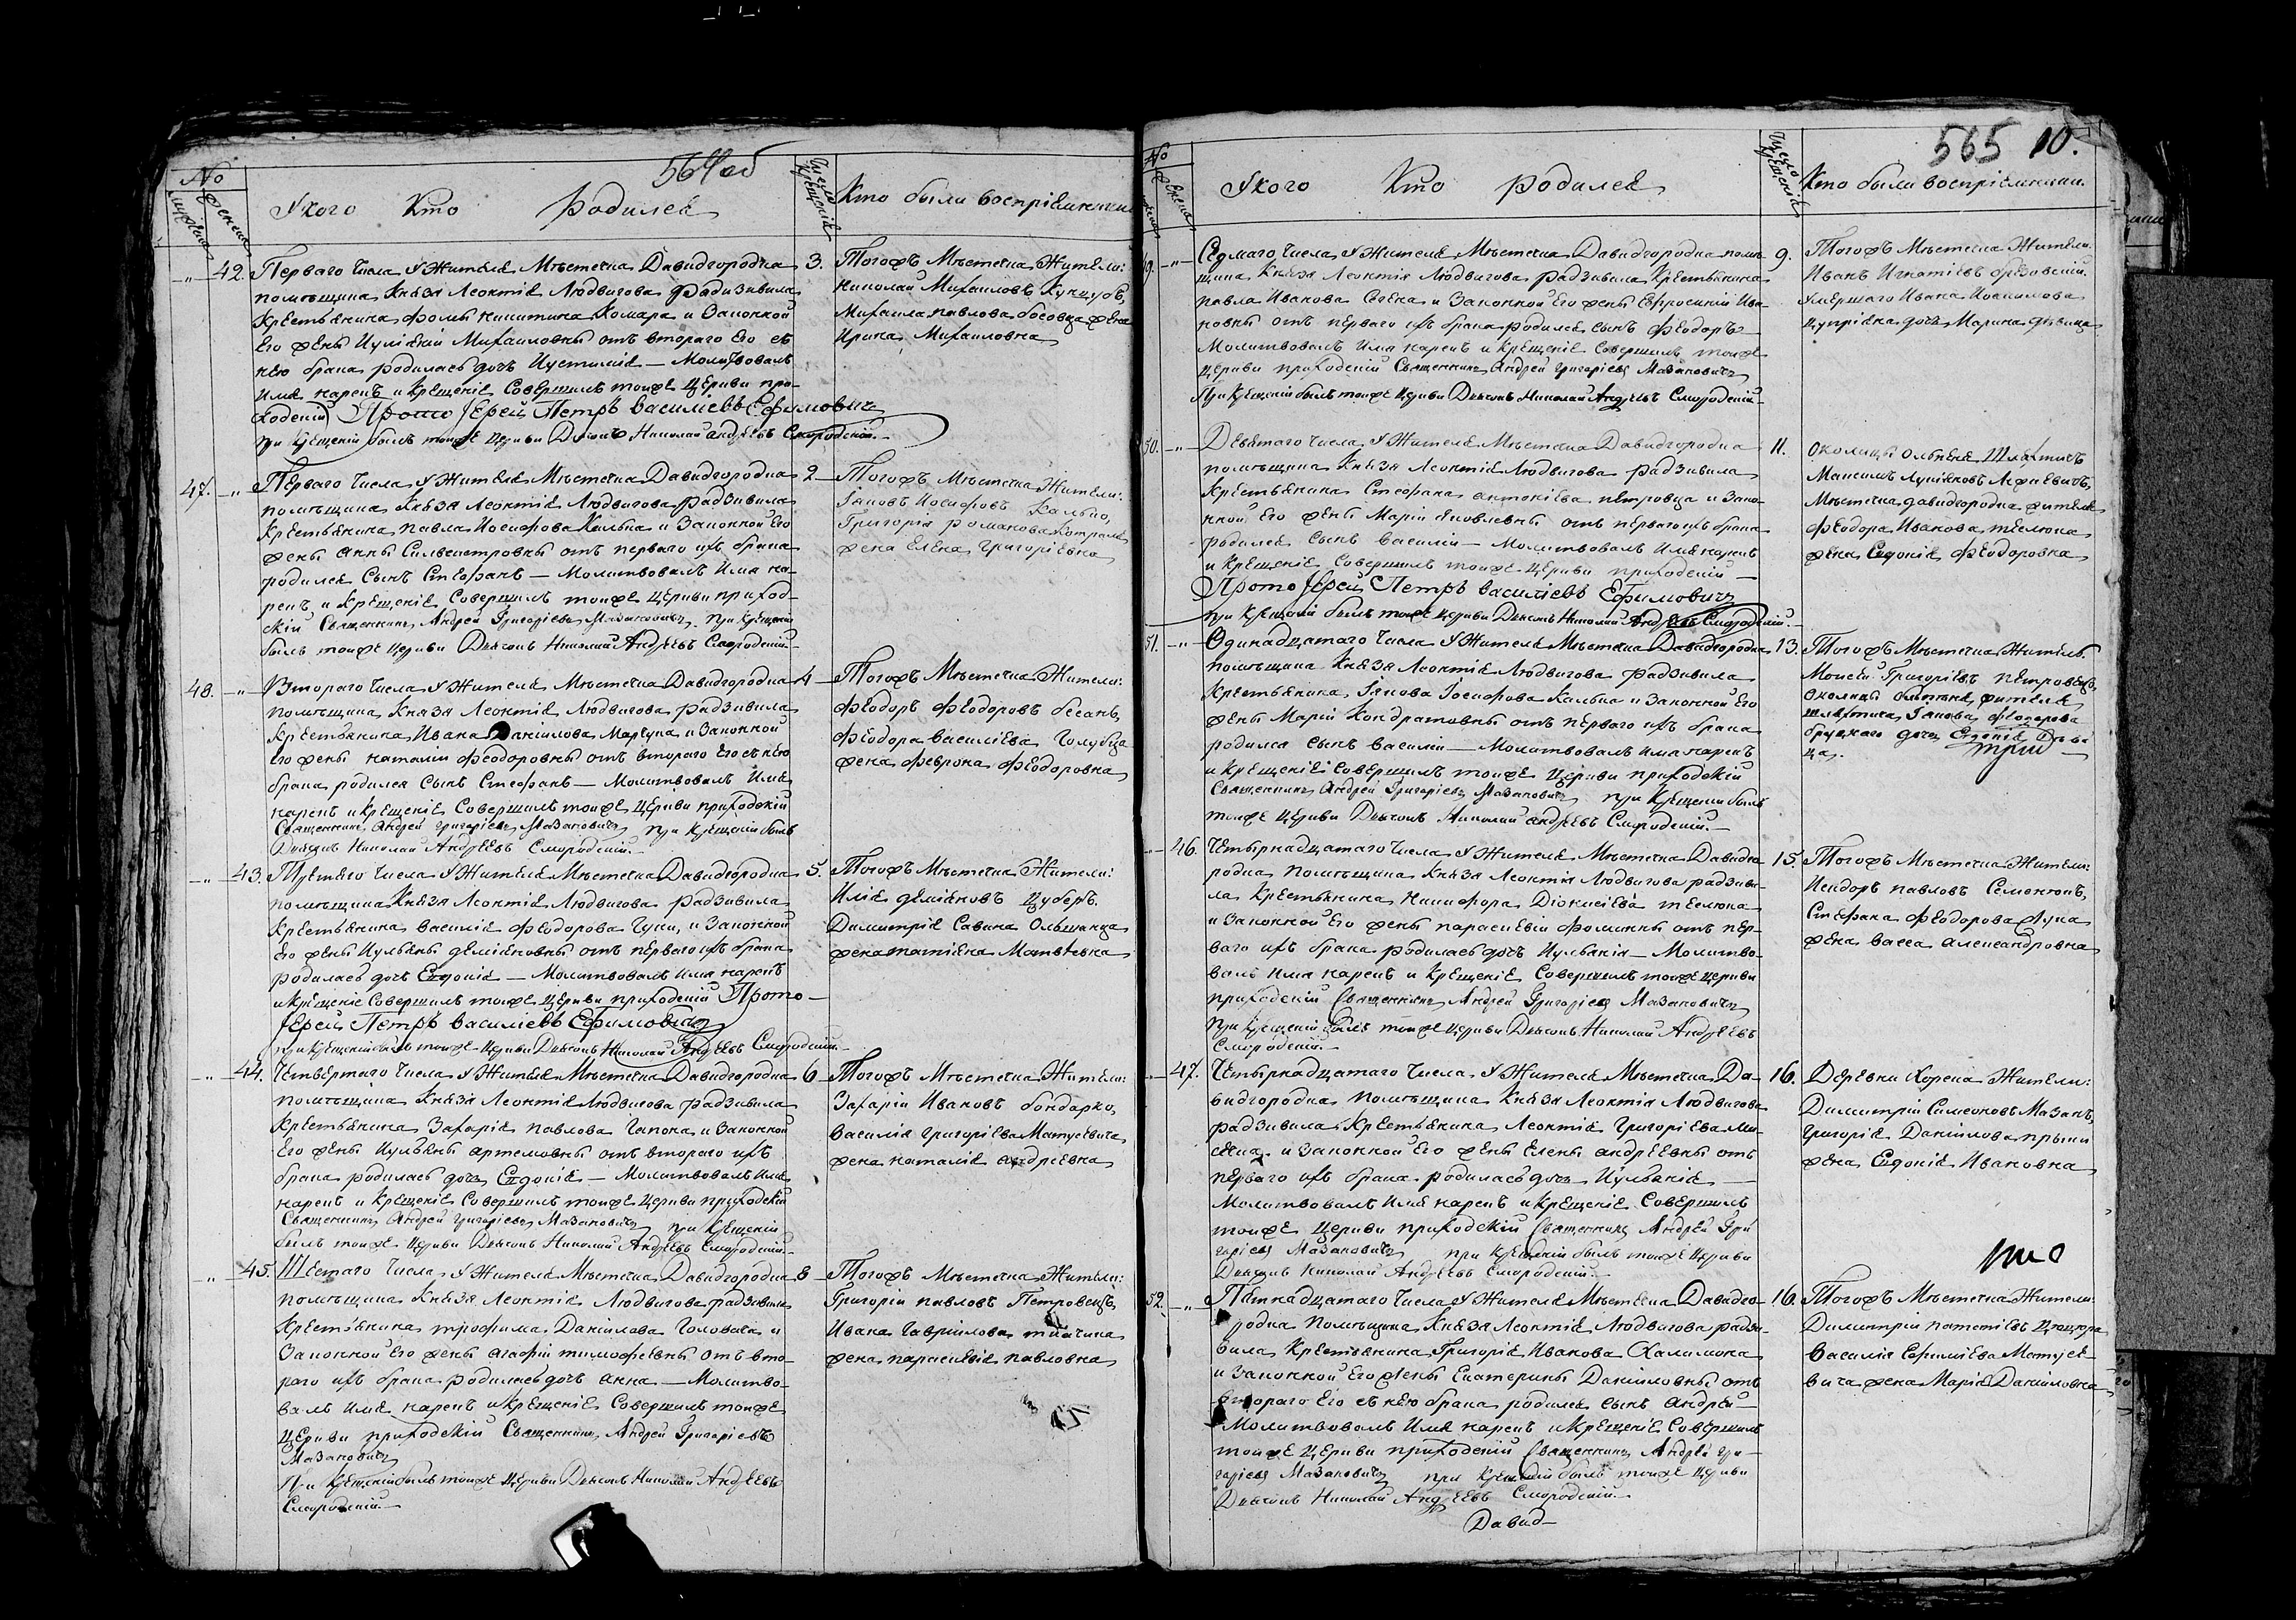 564об
№
мужеска
женска
У кого Кто родился
Число крещенія
Кто были воспріемники
42. Перваго числа У Жителя Мѣстечка Давидгородка
помѣщика Князя Леонтія Людвигова Радзивила
Крестьянина Фомы Никитина Комара и Законной
Его жены Іуліяніи Михаиловны отъ втораго Его съ
нею брака родилась дочь Иустинія — Молитвовалъ
имя нарекъ и Крещеніе Совершилъ тоиже Церкви при-
ходскій Прото Іерей Петръ Василіевъ Ефимовичъ
при Крещеніи былъ тоиже Церкви Дьяконъ Николай Андреевъ Смородскій.—
3. Тогожъ Мѣстечка Жители:
Николай Михаиловъ Кунцубъ,
Михаила Павлова босовца жена
Ирина Михаиловна
47. Перваго Числа У Жителя Мѣстечка Давидгородка
помѣщика Князя Леонтія Людвигова Радзивила
Крестьянина Павла Иосифова Калька и Законной Его
жены Анны Сильвестровны отъ перваго ихъ брака
родился Сынъ Стефанъ — Молитвовалъ Имя на-
рекъ и Крещеніе Совершилъ тоиже Церкви приход-
скій Священникъ Андрей Григоріевъ Мазановичъ при Крещеніи
былъ тоиже Церкви Дьяконъ Николай Андреевъ Смородскій.—
2 Тогожъ Мѣстечка Жители:
Іяковъ Иосифовъ Калько,
Григорія Романова
жена Елена Григоріевна
48. Втораго Числа У Жителя Мѣстечка Давидгородка
помѣщика Князя Леонтія Людвигова Радзивила
Крестьянина Ивана Даніилова и Законной
Его жены Наталіи Феодоровны отъ втораго Его съ нею
брака родился Сынъ Стефанъ — Молитвовалъ Имя
нарекъ и Крещеніе Совершилъ тоиже Церкви приходскій
Священникъ Андрей Григоріевъ Мазановичъ при Крещеніи былъ
Дьяконъ Николай Андреевъ Смородскій.—
4 Тогожъ Мѣстечка Жители:
Феодоръ Феодоровъ бесанъ,
Феодора Василіева Голубца
жена Феврона Феодоровна
43. Третяго Числа У Жителя Мѣстечка Давидгородка
помѣщика Князя Леонтія Людвигова Радзивила
Крестьянина Василія Феодорова и Законной
Его жены Иульяны Деміяновны отъ перваго ихъ брака
родилась дочь Евдокія — Молитвовалъ имя нарекъ
и Крещеніе Совершилъ тоиже Церкви приходскій Прото-
Іерей Петръ Василіевъ Ефимовичъ
при Крещеніи былъ тоиже Церкви Дьяконъ Николай Андреевъ Смородскій.—
5. Тогожъ Мѣстечка Жители:
Илія Деміяновъ Цуберъ.
Димитрія Савина Ольшанца
жена Татіяна Матвѣевна
44. Четвертаго Числа У Жителя Мѣстечка Давидгородка
помѣщика Князя Леонтія Людвигова Радзивила
Крестьянина Захарія Павлова и Законной
Его жены Иульяны Артемовны отъ втораго ихъ
брака родилась дочь Евдокія — Молитвовалъ Имя
нарекъ и Крещеніе Совершилъ тоиже Церкви приходскій
Священникъ Андрей Григоріевъ Мазановичъ при Крещеніи
былъ тоиже Церкви Дьяконъ Николай Андреевъ Смородскій.—
6 Тогожъ Мѣстечка Жители:
Захарій Ивановъ бондарко,
Василія Григоріева Матусевича
жена Наталія Андріевна
45. Шестаго Числа У Жителя Мѣстечка Давидгородка
помѣщика Князя Леонтія Людвигова Радзивила
Крестьянина Трофима Даніилова Головача и
Законной Его жены Агафіи Тимофеевны отъ вто-
раго ихъ брака родилась дочь Анна — Молитво-
валъ Имя нарекъ и Крещеніе Совершилъ тоиже
Церкви приходскій Священникъ Андрей Григоріевъ
Мазановичъ
При Крещеніи былъ тоиже Церкви Дьяконъ Николай Андреевъ
Смородскій.—
8 Тогожъ Мѣстечка Жители:
Григорій Павловъ Петровецъ,
Ивана Гавріилова
жена Параскевія Павловна
565 10.
№
женска
У кого Кто родился
Число крещенія
Кто были воспріемники.
49. Седмаго числа У Жителя Мѣстечка Давидгородка помѣ-
щика Князя Леонтія Людвигова Радзивила Крестьянина
Павла Иванова и Законной Его жены Ефросиніи Ива-
новны отъ перваго ихъ брака родился сынъ Феодоръ —
Молитвовалъ Имя нарекъ и Крещеніе Совершилъ тоиже
Церкви приходскій Священникъ Андрей Григоріевъ Мазановичъ
При Крещеніи былъ тоиже Церкви Дьяконъ Николай Андреевъ Смородскій.—
9. Тогожъ Мѣстечка Жители.
Иванъ Игнатіевъ брезовскій.
Умершаго Ивана Иоакимова
дочь Марина дѣвица
50. Девятаго Числа У Жителя Мѣстечка Давидгородка
помѣщика Князя Леонтія Людвигова Радзивила
Крестьянина Стефана Антоніева Петровца и Зако-
нной Его жены Маріи Яковлевны отъ перваго ихъ брака
родился Сынъ Василій — Молитвовалъ Имя нарекъ
и Крещеніе Совершилъ тоиже Церкви приходскій —
Прото Іерей Петръ Василіевъ Ефимовичъ
при Крещеніи былъ тоиже Церкви Дьяконъ Николай Андреевъ Смородскій.
11. Околицы Ольпеня Шляхтичъ
Максимъ Лукіяновъ
Мѣстечка Давидгородка жителя
Феодора Иванова Теслюка
жена Евдокія Феодоровна
51. Одинадцатаго Числа У Жителя Мѣстечка Давидгородка
помѣщика Князя Леонтія Людвигова Радзивила
Крестьянина Іякова Іосифова Калька и Законной Его
жены Маріи Кондратовны отъ перваго ихъ брака
родился сынъ Василій — Молитвовалъ имя нарекъ
и Крещеніе Совершилъ тоиже Церкви приходскій
Священникъ Андрей Григоріевъ Мазановичъ при Крещеніи былъ
тоиже Церкви Дьяконъ Николай Андреевъ Смородскій.—
13. Тогожъ Мѣстечка Житель
Моисей Григоріевъ Петровецъ,
Околицы жителя
шляхтича Іакова
дочь Евдокія Дѣви
ца.
46. Четырнадцатаго Числа У Жителя Мѣстечка Давидго
родка помѣщика Князя Леонтія Людвигова Радзиви-
ла Крестьянина Никифора Діонисіева Теслюка
и Законной Его жены Параскевіи Фоминны отъ пер-
ваго ихъ брака родилась дочь Иульянія — Молитво-
валъ имя нарекъ и Крещеніе Совершилъ тоиже Церкви
приходскій Священникъ Андрей Григоріевъ Мазановичъ
При Крещеніи былъ тоиже Церкви Дьяконъ Николай Андреевъ
Смородскій.—
15. Тогожъ Мѣстечка Жители:
Исидоръ Павловъ Семенюкъ,
Стефана Феодорова
жена Васса Александровна
47. Четырнадцатаго Числа У Жителя Мѣстечка Да-
видгородка помѣщика Князя Леонтія Людвигова
Радзивила Крестьянина Леонтія Григоріева
и Законной Его жены Елены Андреевны отъ
перваго ихъ брака родилась дочь Иульянія —
Молитвовалъ Имя нарекъ и Крещеніе Совершилъ
тоиже Церкви приходскій Священникъ Андрей Гри
горіевъ Мазановичъ при Крещеніи былъ тоиже Церкви
Дьяконъ Николай Андреевъ Смородскій.—
16. Деревни Хорска Жители:
Димитрій Симеоновъ Мазанъ,
Григорія Даніилова
жена Евдокія Ивановна
52. Пятнадцатаго Числа У Жителя Мѣстечка Давидго-
родка помѣщика Князя Леонтія Людвигова Радзи-
вила Крестьянина Григорія Иванова Халимона
и Законной Его жены Екатерины Даниловны отъ
втораго Его съ нею брака родился сынъ Андрей —
Молитвовалъ Имя нарекъ и Крещеніе Совершилъ
тоиже Церкви приходскій Священникъ Андрей Гри-
горіевъ Мазановичъ при Крещеніи былъ тоиже Церкви
Дьяконъ Николай Андреевъ Смородскій.—
16. Тогожъ Мѣстечка Жители:
Димитрій
Василія Ефиміева Матусе-
вича жена Марія Даніиловна
Давид—